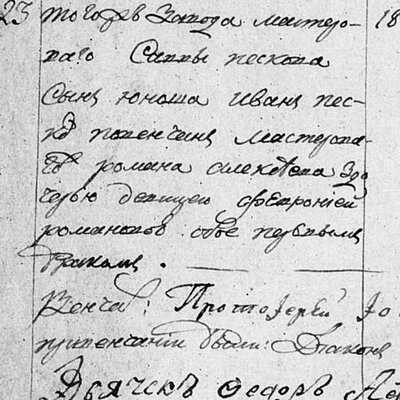 23 тогожъ Завода мастеро- 18
ваго Саввы пескова
Сынъ юноша Иванъ пес-
ковъ повенчанъ мастерова-
го романа алексѣева З до
черью девицею феѳрониею
романовою обое первымъ
бракомъ.
Венчалъ: Протоіерей Іо
при венчании были: Диаконъ
Дьячекъ Федоръ